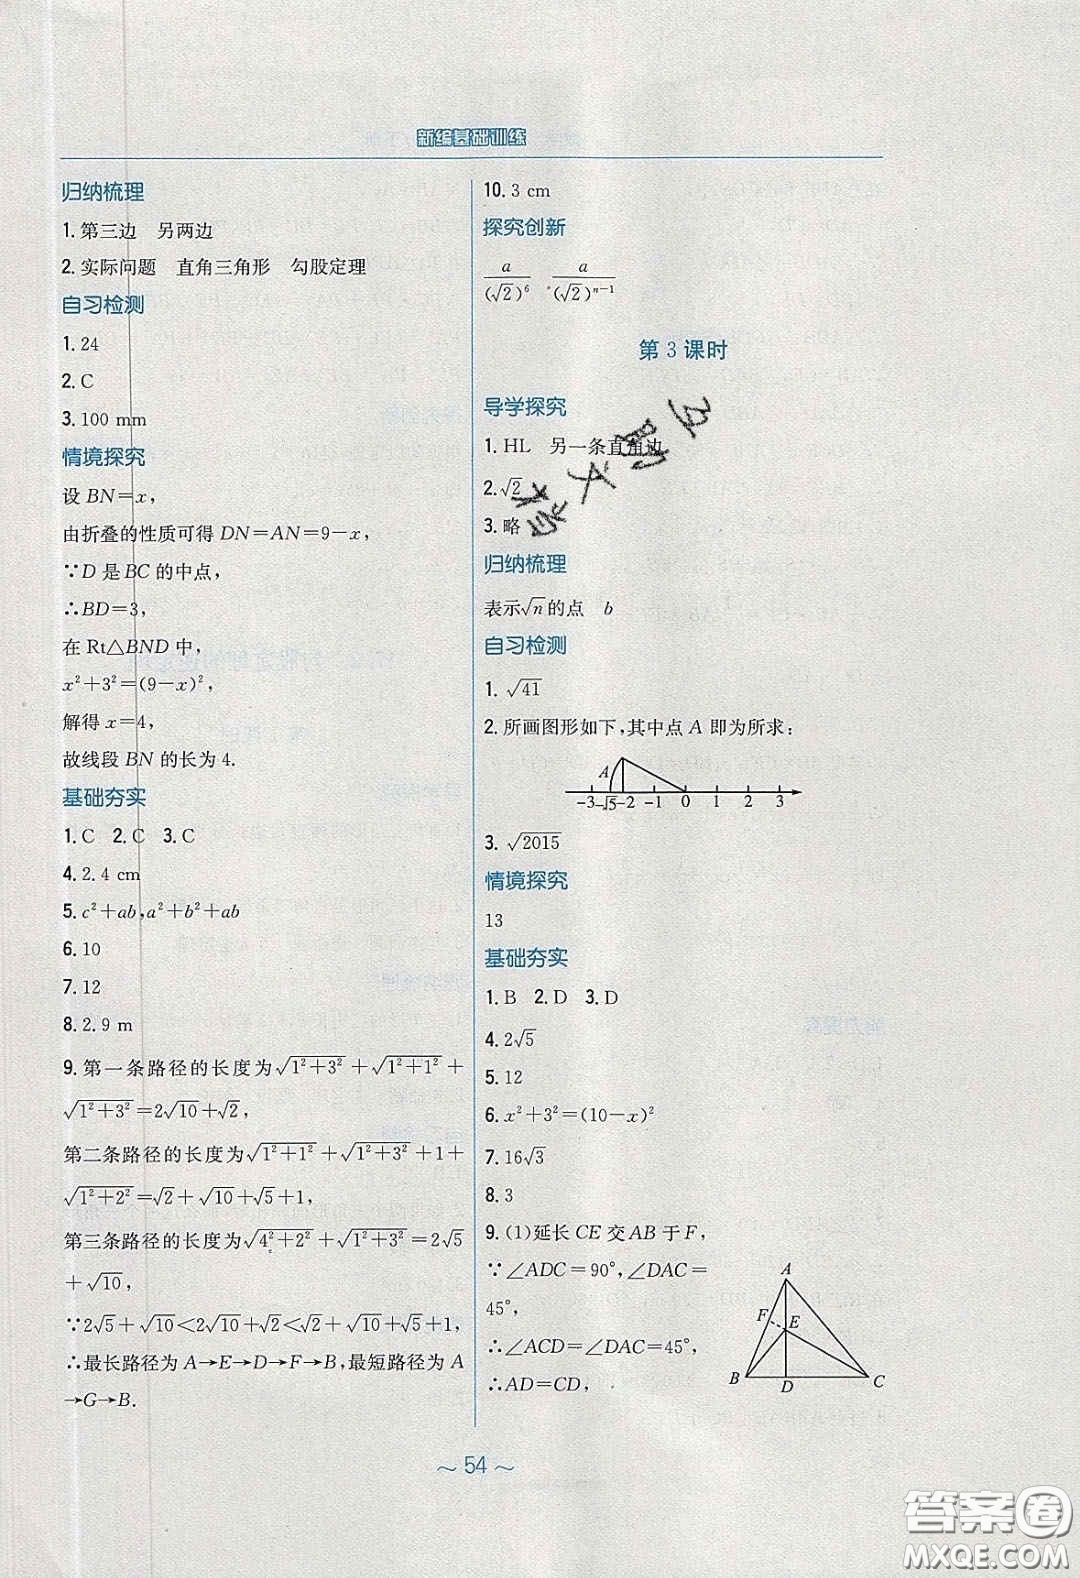 新编基础训练
归纳梳理
1. 第三边 另两边
2. 实际问题 直角三角形 勾股定理
自习检测
1. 24
2. C
3. 100 mm
情境探究
设 BN=x,
由折叠的性质可得 DN=AN=9-x,
∵D 是 BC 的中点,
∴BD=3,
在 Rt△BND 中,
x²+3²=(9-x)²,
解得 x=4,
故线段 BN 的长为 4.
基础夯实
1. C 2. C 3. C
4. 2.4 cm
5. c²+ab, a²+b²+ab
6. 10
7. 12
8. 2.9 m
9. 第一条路径的长度为√(1²+3²)+√(1²+1²)+
√(1²+3²)=2√10+√2,
第二条路径的长度为√(1²+1²)+√(1²+3²)+1+
√(1²+2²)=√2+√10+√5+1,
第三条路径的长度为√(4²+2²)+√(1²+3²)=2√5
+√10,
∵2√5+√10<2√10+√2<√2+√10+√5+1,
∴最长路径为 A→E→D→F→B,最短路径为 A
→G→B.
10. 3 cm
探究创新
a/(√2)⁶ a/(√2)ⁿ⁻¹
第 3 课时
导学探究
1. HL 另一条直角边
2. √2
3. 略
归纳梳理
表示√n的点 b
自习检测
1. √41
2. 所画图形如下,其中点 A 即为所求:
A
-3 -√5 -2 -1 0 1 2 3
3. √2015
情境探究
13
基础夯实
1. B 2. D 3. D
4. 2√5
5. 12
6. x²+3²=(10-x)²
7. 16√3
8. 3
9. (1)延长 CE 交 AB 于 F,
∵∠ADC=90°,∠DAC=
45°,
∴∠ACD=∠DAC=45°,
∴AD=CD,
A
F
E
B
D
C
~ 54 ~
答案圈
MXQE.COM